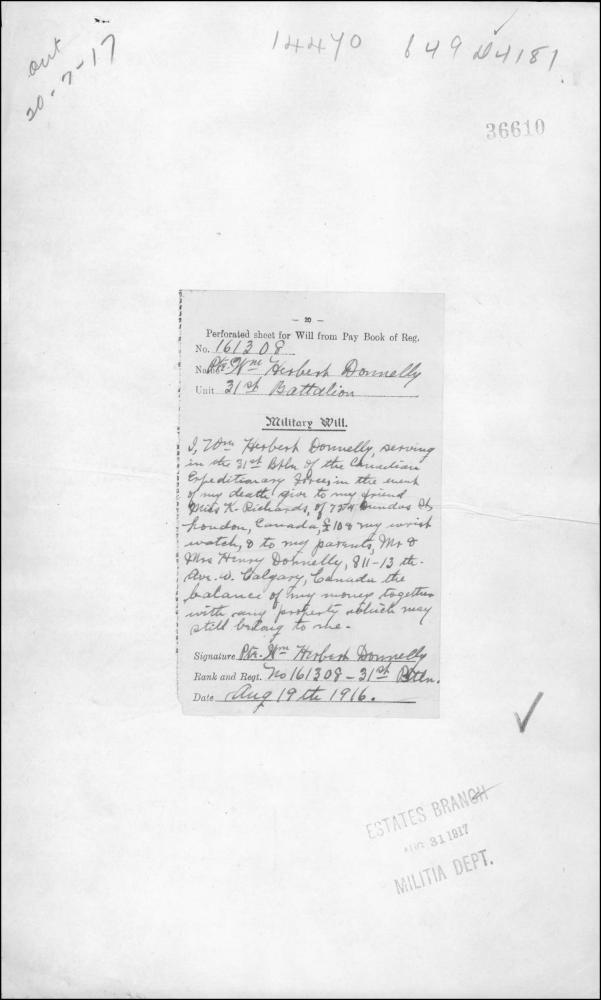 out
20-7-17
14470 649 D4181
36610
- 20 -
Perforated sheet for Will from Pay Book of Reg.
No. 161308
Name Pte. Wm Herbert Donnelly
Unit 31st Battalion
Military Will.
I, Wm Herbert Donnelly, serving
in the 31st Btln of the Canadian
Expeditionary Force, in the event
of my death, give to my friend
Miss K. Richards, of Dundas St,
London, Canada, £10 & my wrist
watch, & to my parents, Mr &
Mrs Henry Donnelly, 811-13 th.
Ave. W. Calgary, Canada the
balance of my money together
with any property which may
still belong to me-
Signature Pte. Wm Herbert Donnelly
Rank and Regt. No 161308 - 31st Btln.
Date Aug 19th 1916.
ESTATES BRANCH
AUG 31 1917
MILITIA DEPT.